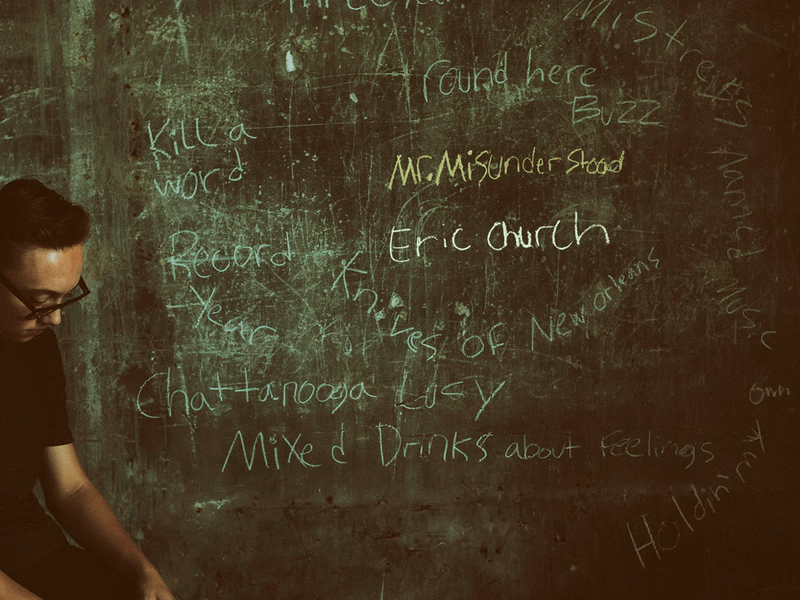 Mistress Named Music
round here
Buzz
Kill a
word
Mr. Misunderstood
Eric Church
Record
Year
Knives of New Orleans
Chattanooga Lucy
Mixed Drinks about Feelings
Holdin' my
own